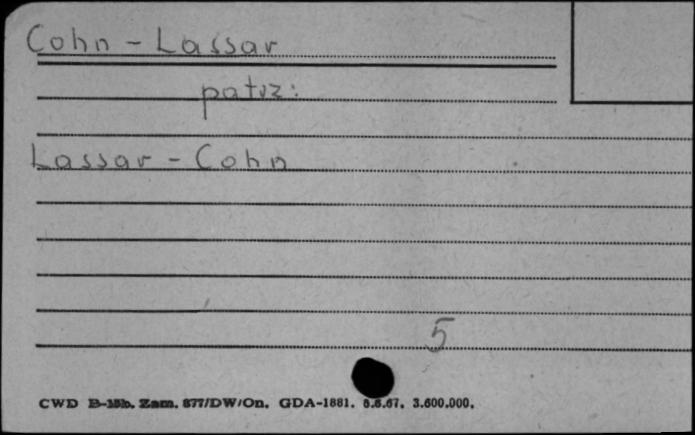 Cohn - Lassar
patrz:
Lassar - Cohn
5
CWD B-15b. Zam. 877/DW/On. GDA-1881. 6.6.67. 3.600.000.